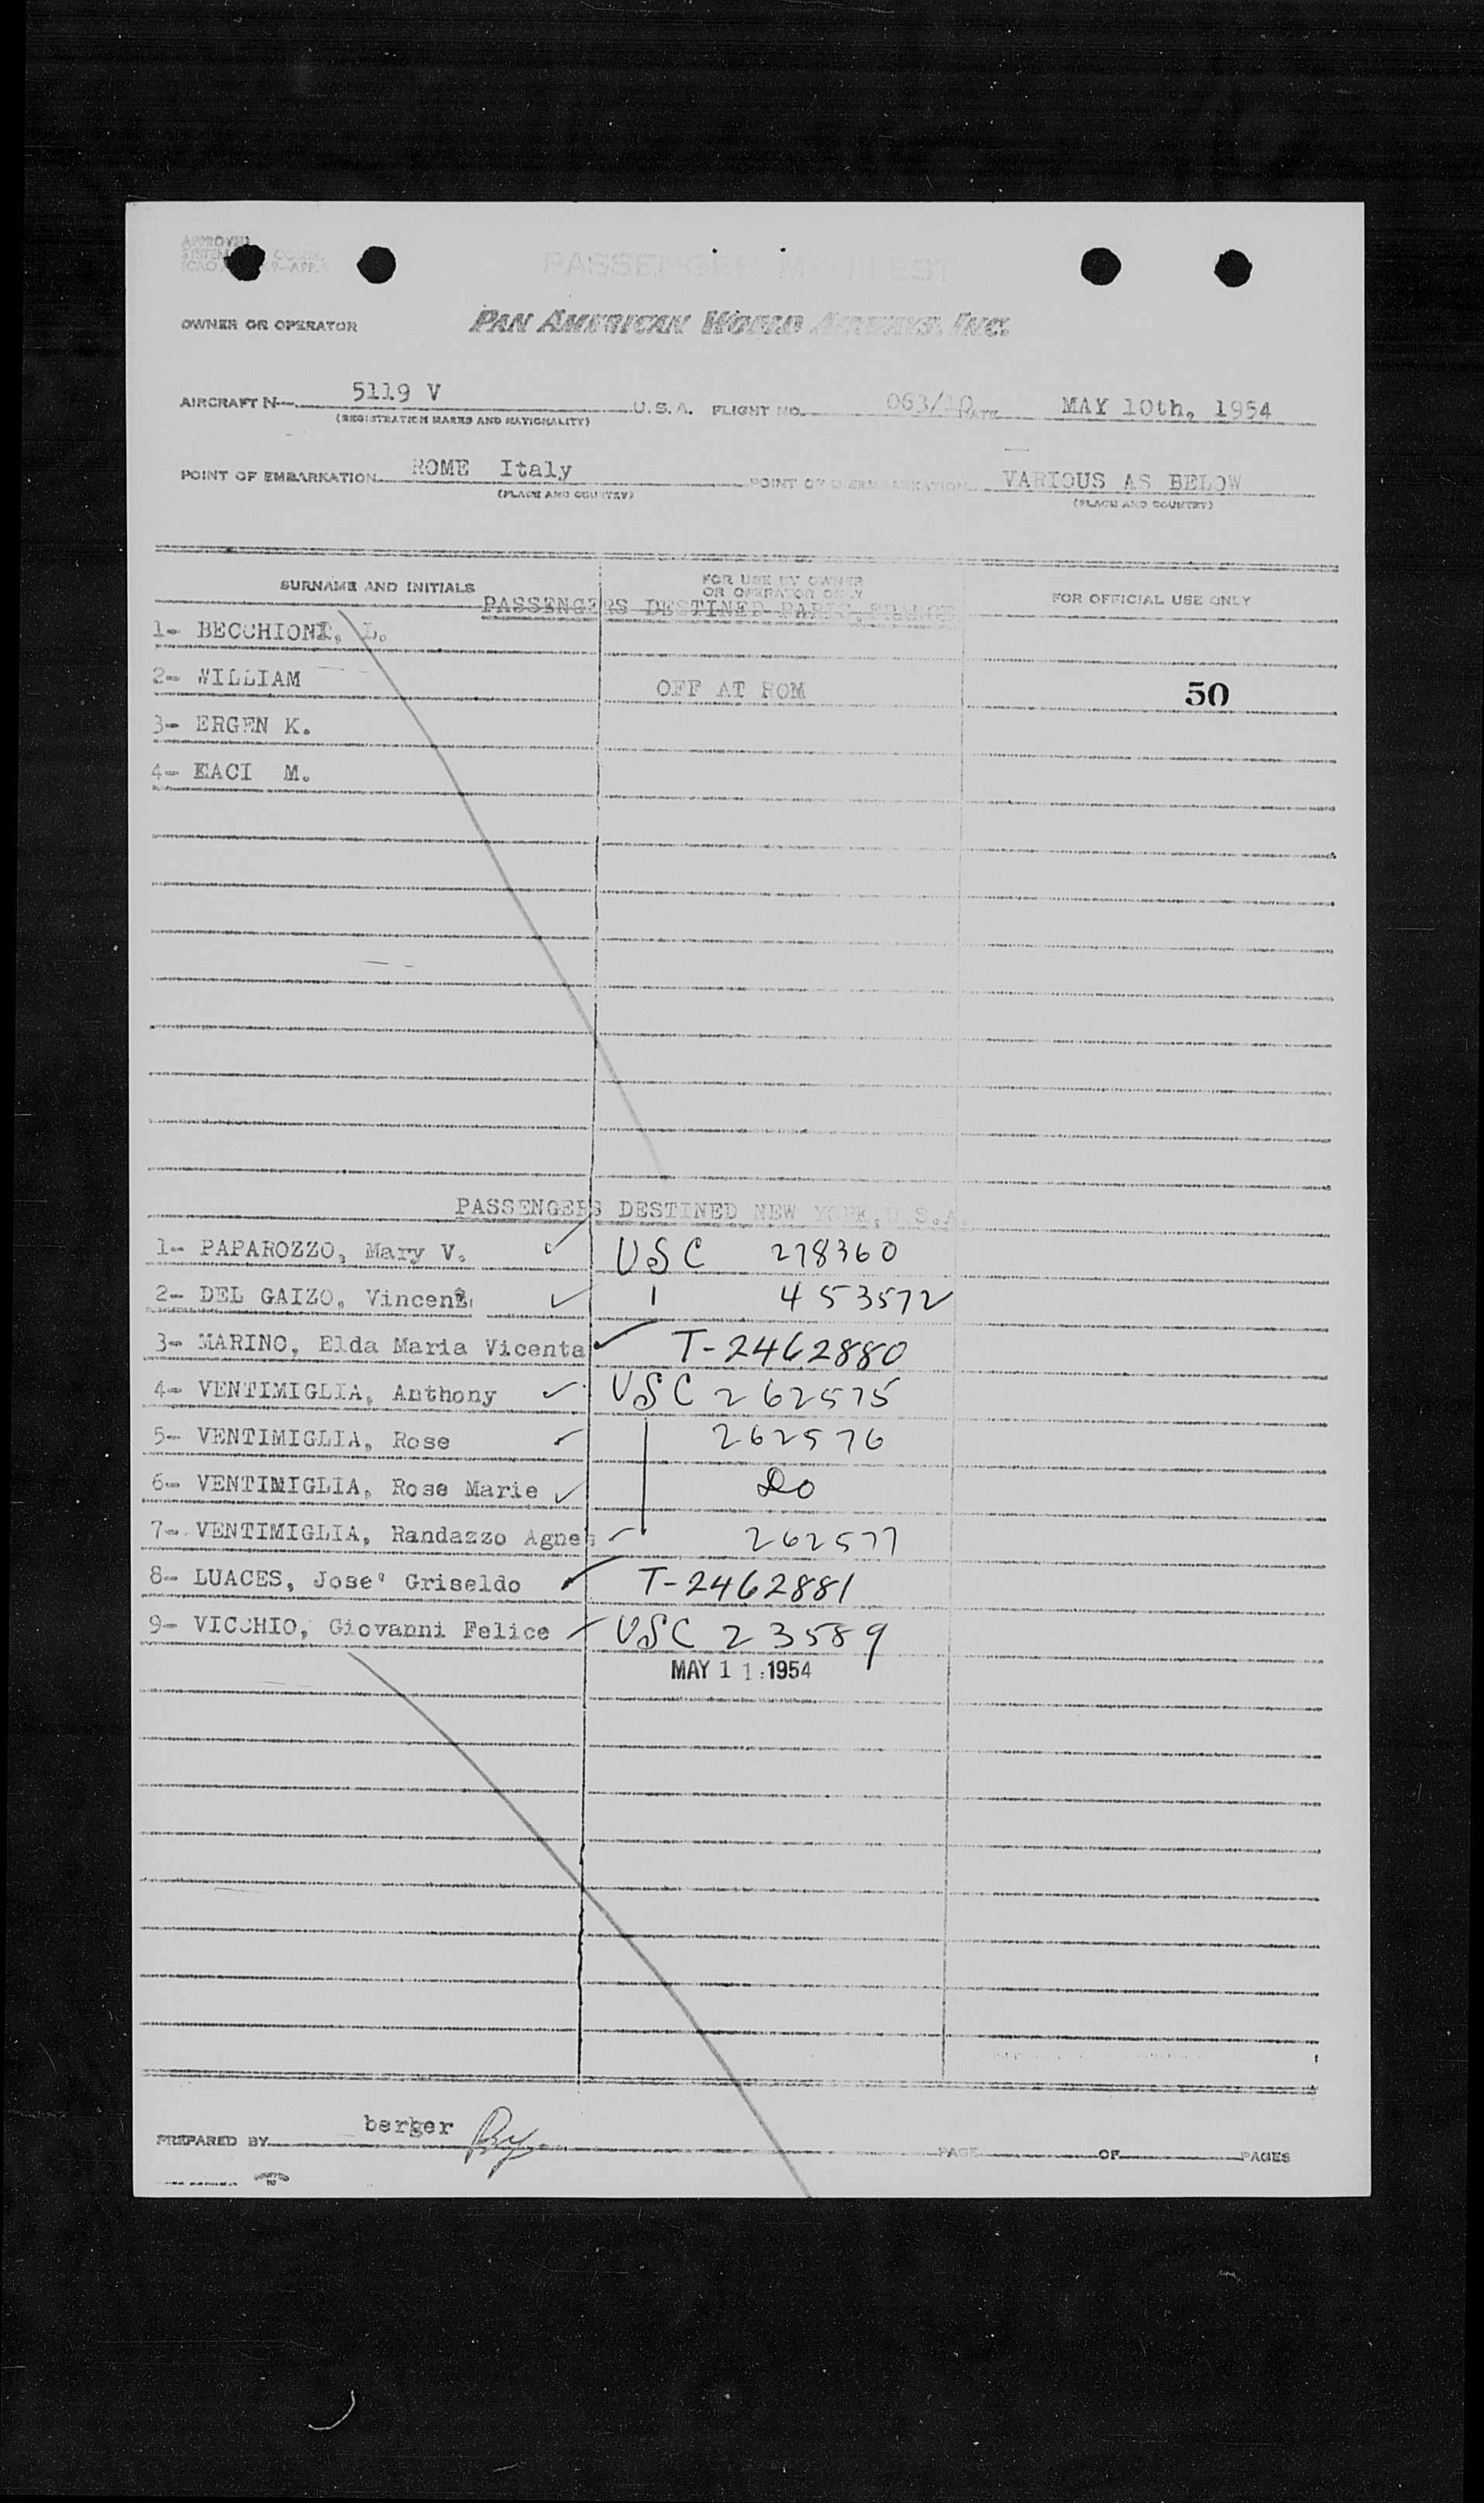 APPROVED
SYSTEM
ICAO 9-APP.
PASSENGER MANIFEST
OWNER OR OPERATOR PAN AMERICAN WORLD AIRWAYS, INC.
AIRCRAFT N 5119 V U.S.A. FLIGHT NO. 063/10 DATE MAY 10th, 1954
(REGISTRATION MARKS AND NATIONALITY)
POINT OF EMBARKATION ROME Italy POINT OF DISEMBARKATION VARIOUS AS BELOW
(PLACE AND COUNTRY) (PLACE AND COUNTRY)
SURNAME AND INITIALS FOR USE BY OWNER OR OPERATOR ONLY FOR OFFICIAL USE ONLY
PASSENGERS DESTINED PARIS, FRANCE
1- BECCHIONI, L.
2- WILLIAM OFF AT ROM 50
3- ERGEN K.
4- EACI M.
PASSENGERS DESTINED NEW YORK, U.S.A.
1- PAPAROZZO, Mary V. ✓ USC 278360
2- DEL GAIZO, Vincent ✓ 453572
3- MARINO, Elda Maria Vicenta ✓ T-2462880
4- VENTIMIGLIA, Anthony ✓ USC 262575
5- VENTIMIGLIA, Rose ✓ 262576
6- VENTIMIGLIA, Rose Marie ✓ Do
7- VENTIMIGLIA, Randazzo Agnes ✓ 262577
8- LUACES, Jose' Griseldo ✓ T-2462881
9- VICCHIO, Giovanni Felice ✓ USC 23589
MAY 11 1954
PREPARED BY berger PAGE OF PAGES